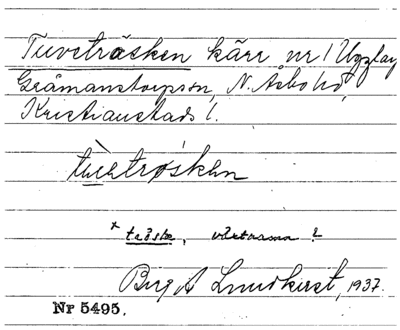 Tuveträsken kärr nr 1 Ugglay
Gråmanstorpssn, N. Åsbo hd,
Kristianstads l.
tùvetrǿskən
× träske, växtnamn?
Birgit Lundkvist, 1937.
Nr 5495.